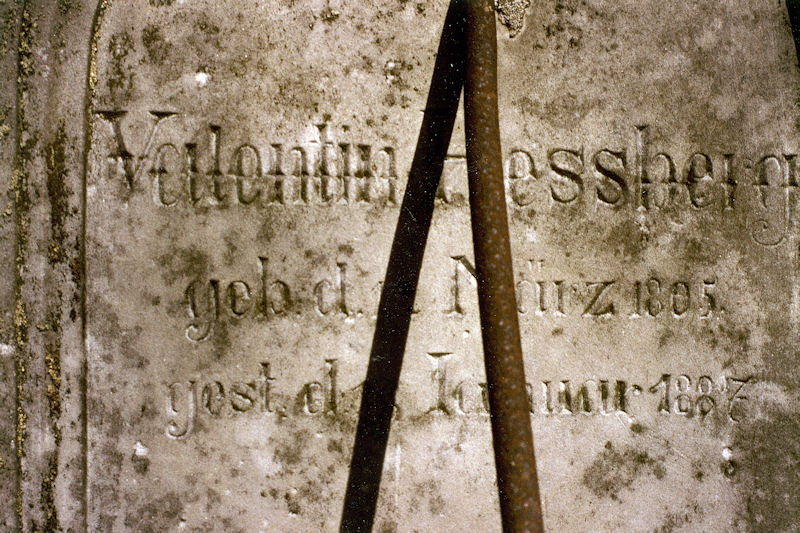 Valentin
geb. d. März 1805.
gest. d. Januar 1887